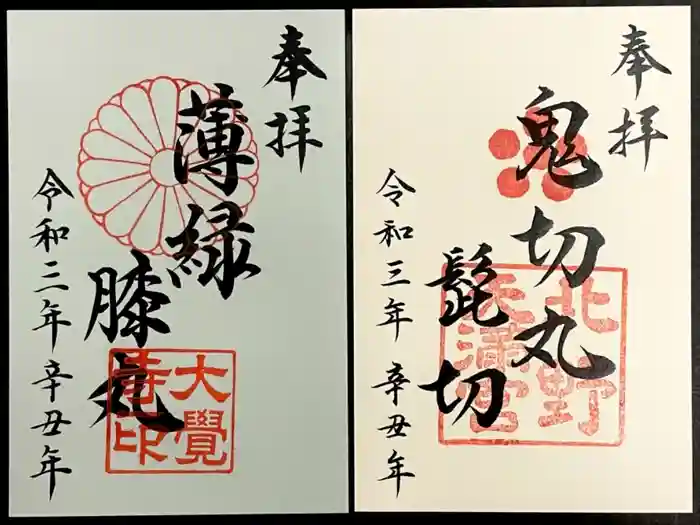 奉拝
薄緑
膝丸
令和三年辛丑年
大覺
寺印
奉拝
鬼切丸
髭切
令和三年辛丑年
北野
天満宮